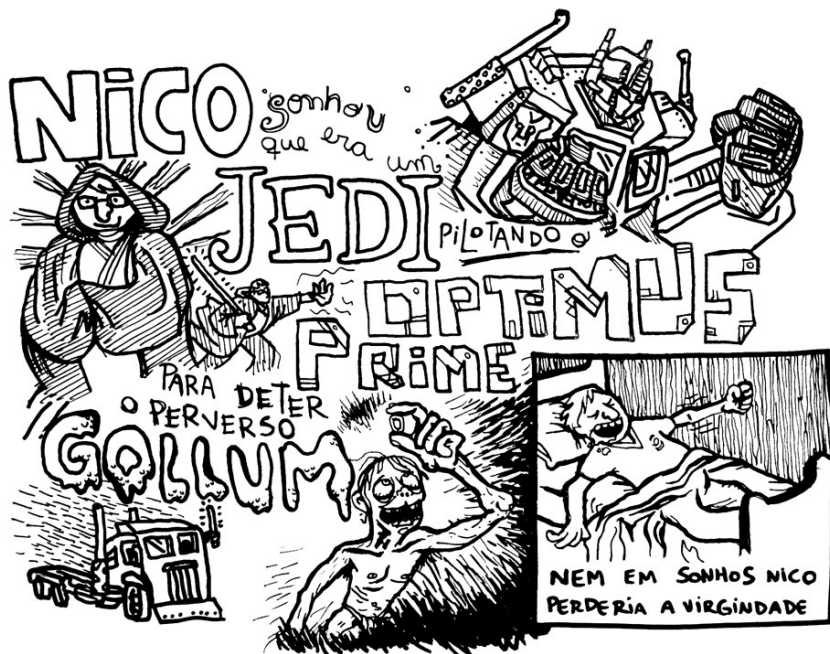 NiCO sonhou
que era um
JEDI PiLOTANDO O
OPTiMUS
PRiME
PARA DETER
O PERVERSO
GOLLUM
NEM EM SONHOS NICO
PERDERIA A VIRGINDADE